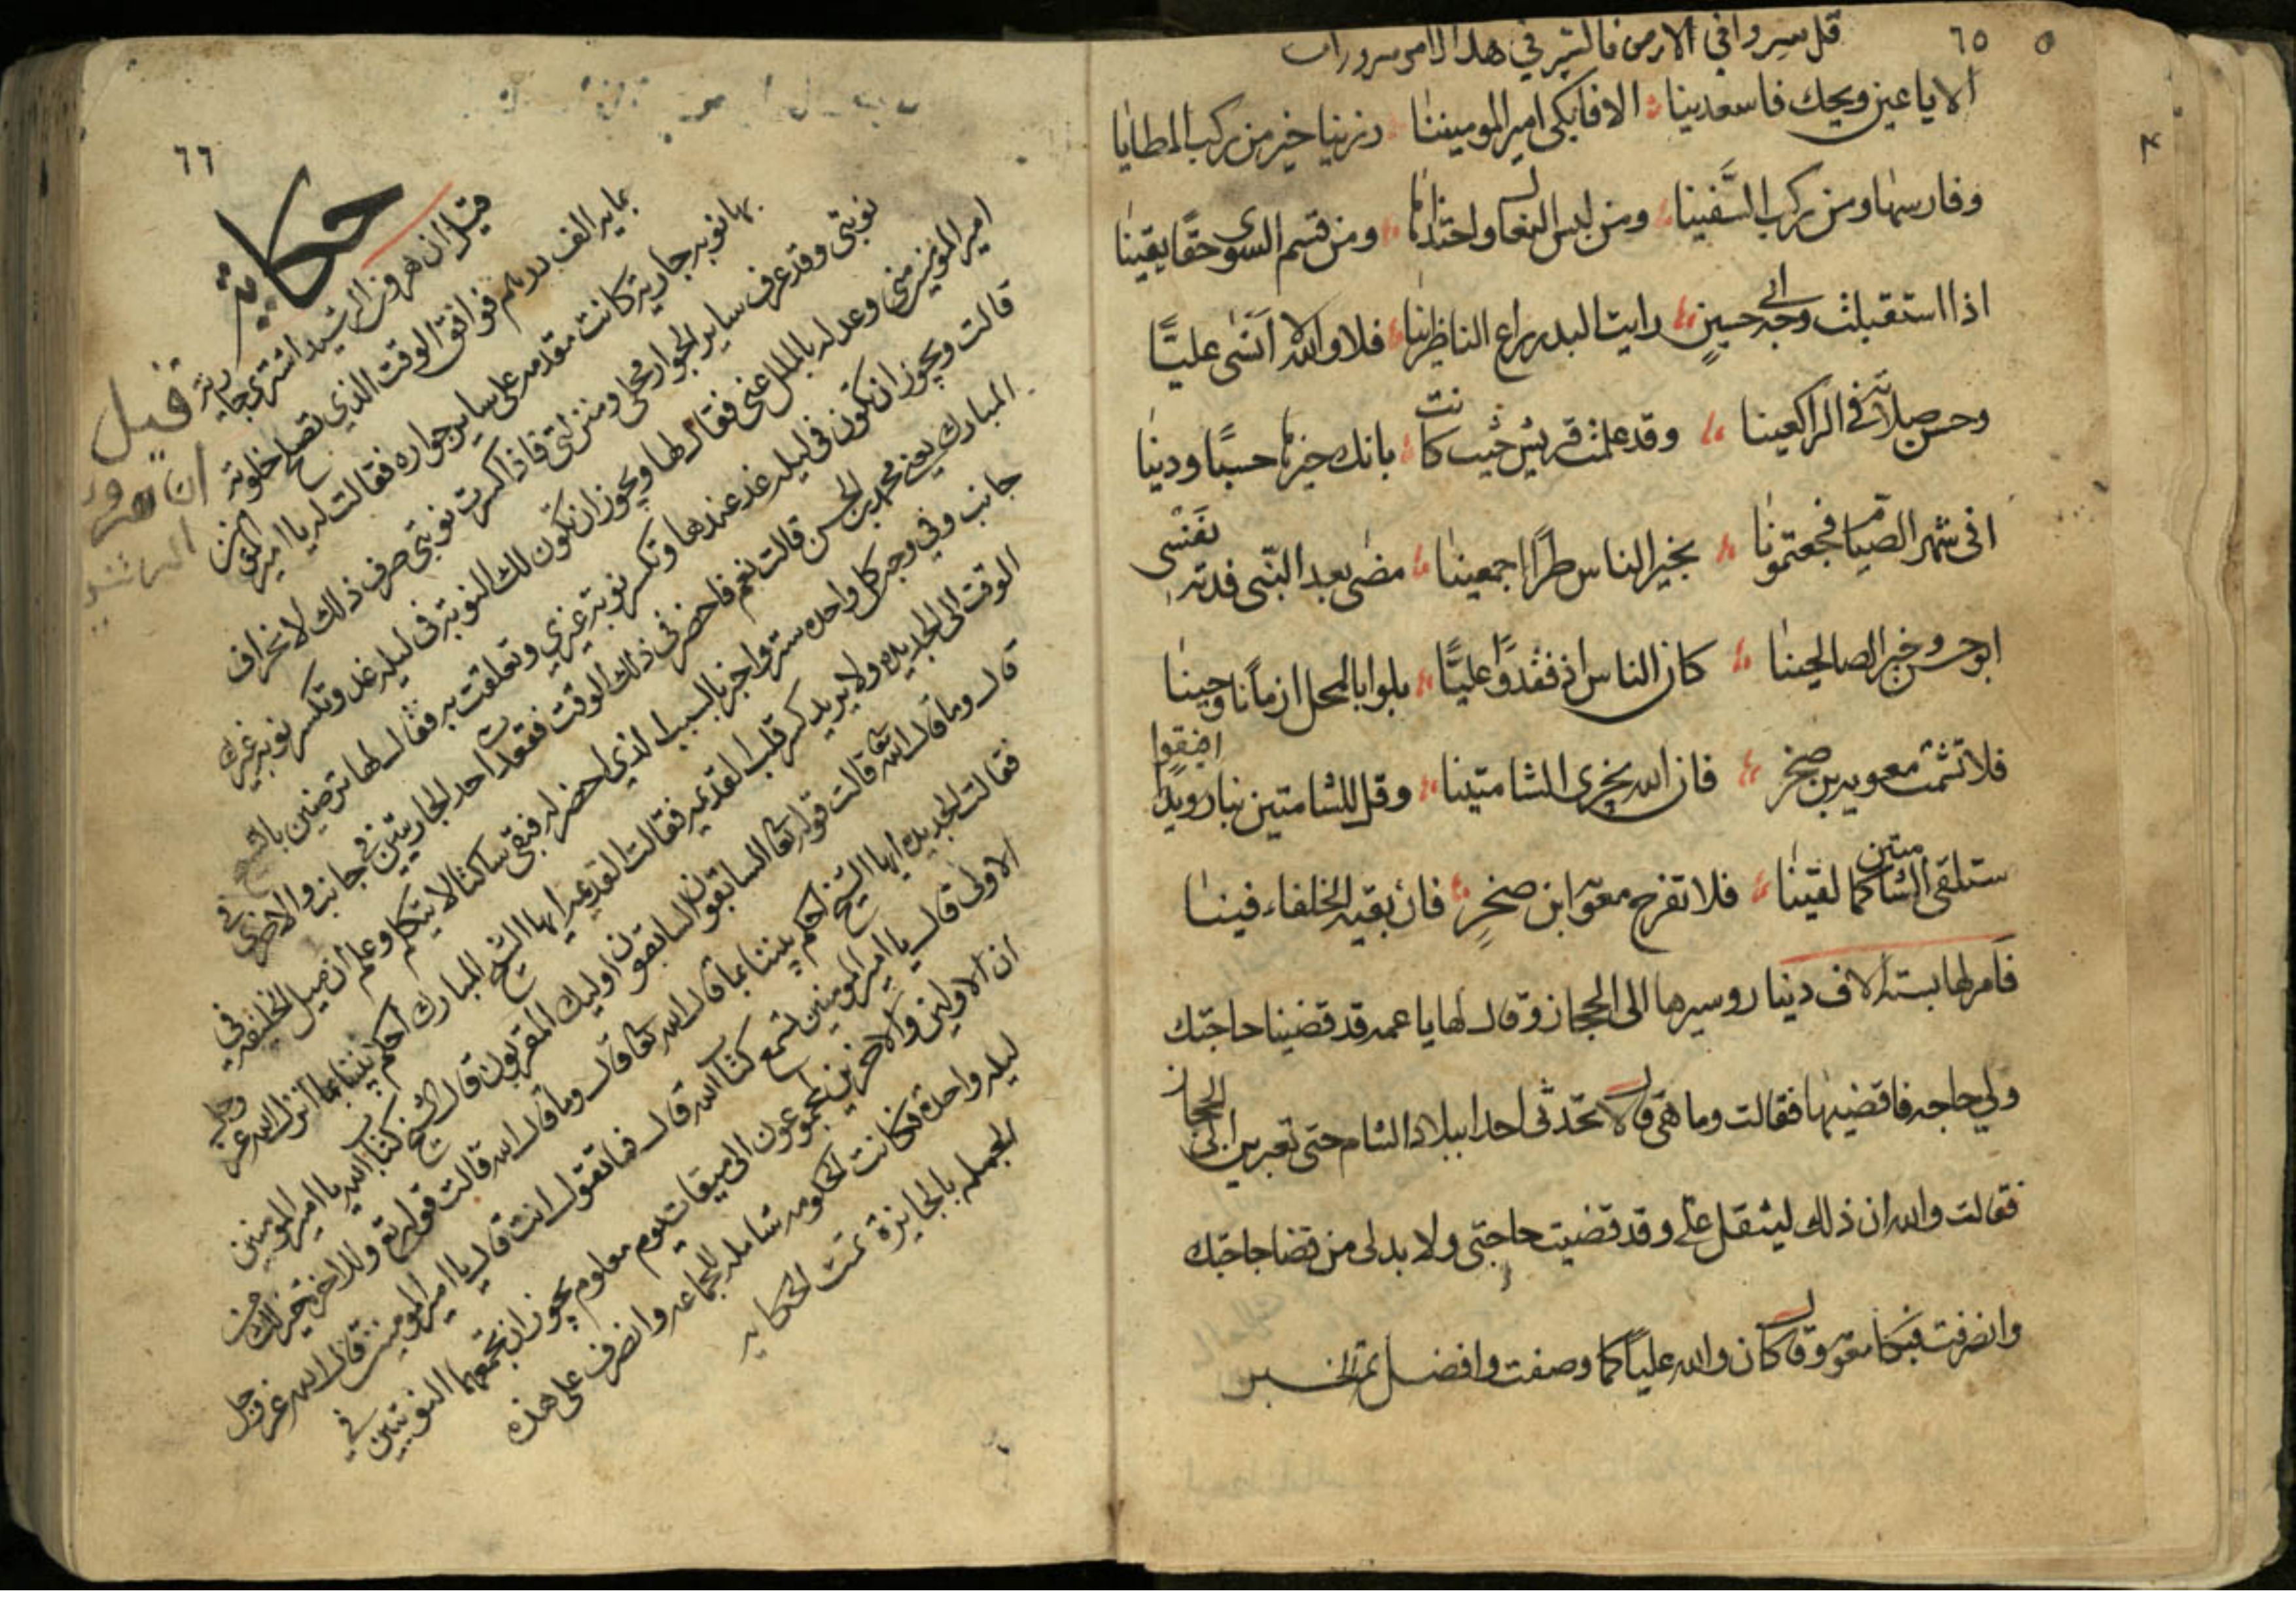 ٦٥
قل سيروا في الارض فالسير في هذا الامر سرورات
الا يا عين ويحك فاسعدينا الا فابكي امير المومنينا رزينا خير من ركب المطايا
وفارسها ومن ركب السفينا ومن لبس النعال واحتذاها ومن قسم السوى حقا يقينا
اذا استقبلت وجه ابي حسين رايت البدر راع الناظرينا فلا والله لا انسى عليا
وحسن صلاته في الراكعينا وقد علمت قريش حيث كانت بانك خيرها حسبا ودينا
افي شهر الصيام فجعتمونا بخير الناس طرا اجمعينا مضى بعد النبي فدته نفسي
ابو حسن وخير الصالحينا كان الناس اذ فقدوا عليا بلوا بالمحل ازمانا وحينا
فلا تشمت معويه بن صخر فان الله يخزي الشامتينا وقل للشامتين بنا رويدا افيقوا
ستلقى الشامتين كما لقينا فلا تفرح معوية ابن صخر فان بقيه الخلفاء فينا
فامر لها بستة الاف دينار وسيرها الى الحجاز وقال لها يا عمه قد قضينا حاجتك
ولي حاجه فاقضيها فقالت وما هي قال لا تحدثي احدا ببلاد الشام حتى تعبرين الى الحجاز
فقالت والله ان ذلك ليثقل علي وقد قضيت حاجتي ولا بد لي من قضا حاجتك
وانصرفت فبكا معوية وقال كان والله عليا كما وصفت وافضل تم الخبر
٦٦
حكاية
قيل ان هرون الرشيد اشترى جارية
بمايه الف درهم فوافق الوقت الذي تصلح خلوته
بها نوبه جارية كانت متقدمه على ساير جواره فقالت له يا امير المومنين
نوبتي وقد عرف ساير الجوار محلي ومنزلتي فاذا كسرت نوبتي صرف ذلك لانحراف
امير المومنين مني وعدله بالملل عني فقال لها ويجوز ان تكون لك النوبة في ليله غد وتكسر نوبه غيرك
قالت ويجوز ان تكون في ليله غد عندها وتكسر نوبة غيري وتعلقت به فقال لها ترضين بالشيخ
المبارك يعني محمد بن الحسن قالت نعم فاحضر في ذلك الوقت فقعدت احد الجاريتين في جانب والاخرى في
جانب وفي وجه كل واحده ستر واخبر بالسبب الذي احضر له فبقى ساكتا لا يتكلم وعلم ان ميل الخليفه في
الوقت الى الجديده ولا يريد كسر قلب القديمه فقالت القديمه ايها الشيخ المبارك احكم بيننا بما انزل الله عز وجل
قال وما قال الله تعا قالت قوله تعا السابقون السابقون اوليك المقربون قال الشيخ كتاب الله يا امير المومنين
فقالت الجديده ايها الشيخ احكم بيننا بما قال الله تعا قال وما قال الله قالت قوله تع وللاخرة خير لك من
الاولى قال يا امير المومنين تسمع كتاب الله قال فما تقول انت قال يا امير المومنين قال الله عز وجل
ان الاولين والاخرين لمجموعون الى ميقات يوم معلوم يجوز ان تجمعهما النوبتين في
ليله واحدة فكانت الحكومه شامله للجماعه وانصرف على هذه
الجمله بالجايزة تمت الحكايه
قيل
ان هرون
الرشيد